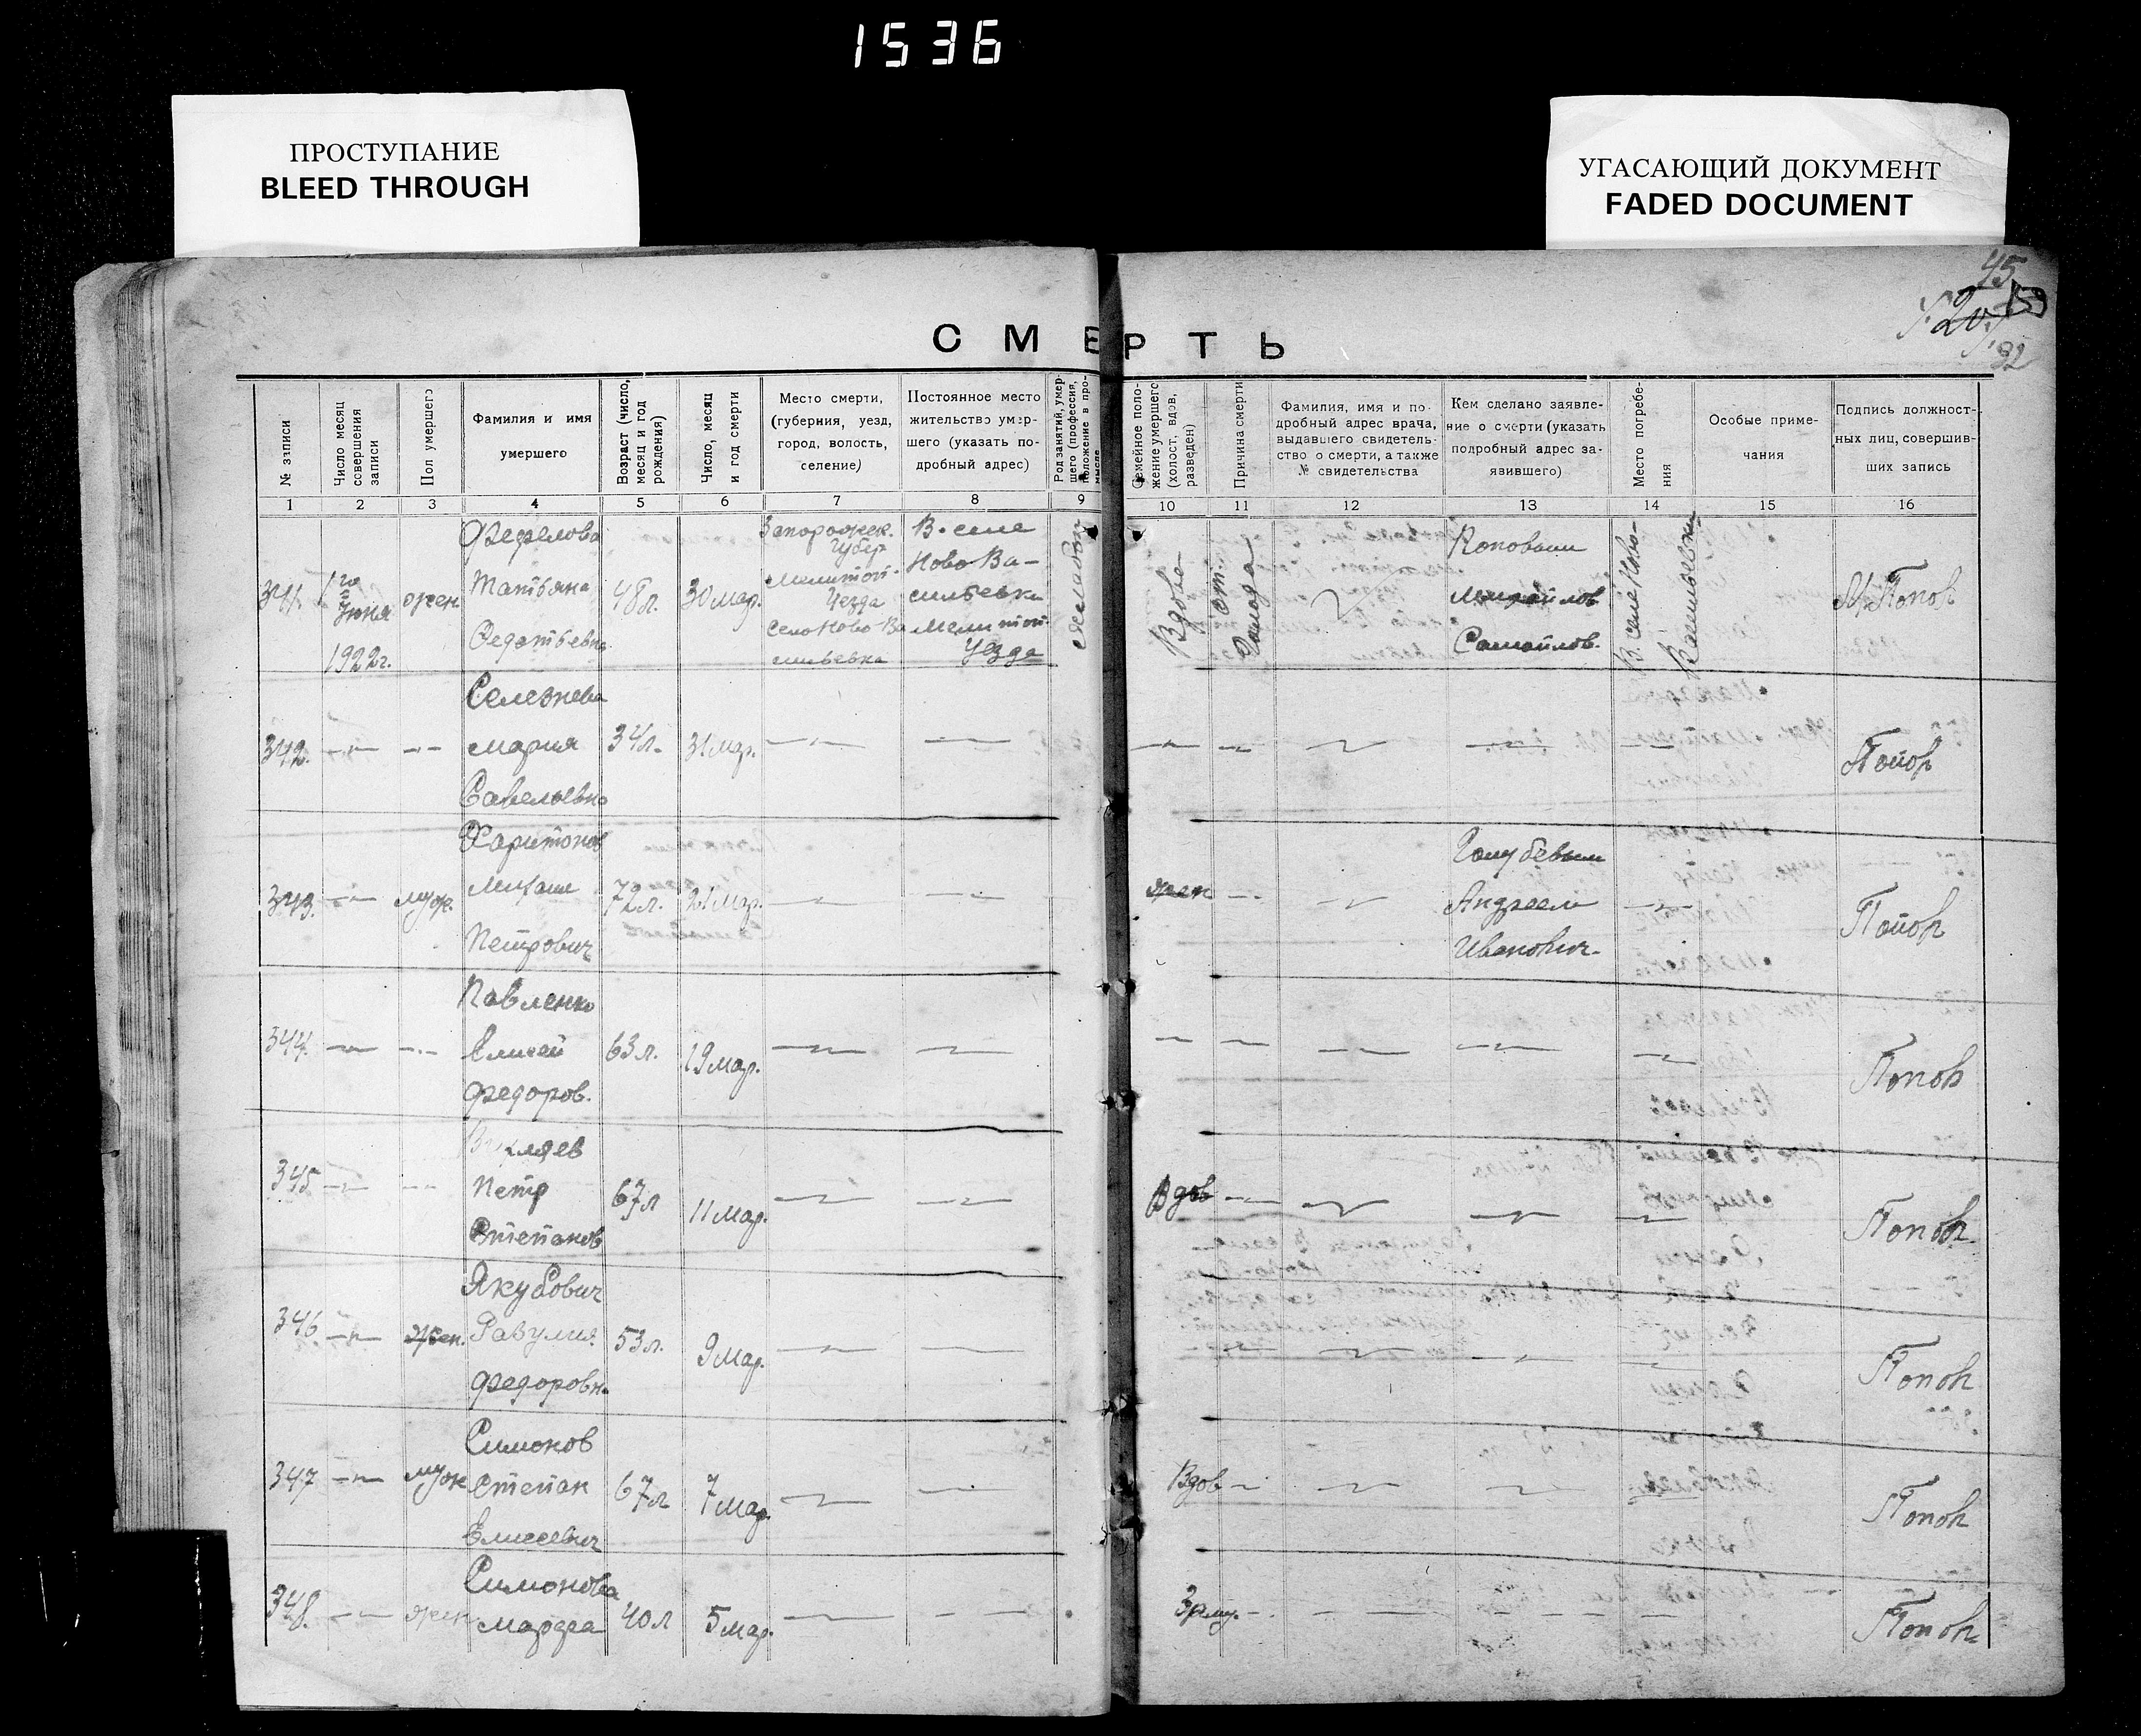 1536
ПРОСТУПАНИЕ
BLEED THROUGH
УГАСАЮЩИЙ ДОКУМЕНТ
FADED DOCUMENT
45
СМЕРТЬ
№ записи
Число месяц совершения записи
Пол умершего
Фамилия и имя умершего
Возраст (число, месяц и год рождения)
Число, месяц и год смерти
Место смерти, (губерния, уезд, город, волость, селение)
Постоянное место жительство умер-шего (указать по-дробный адрес)
Род занятий, умер-шего (профессия, положение в про-мысле
Семейное поло-жение умершего (холост, вдов, разведен)
Причина смерти
Фамилия, имя и по-дробный адрес врача, выдавшего свидетель-ство о смерти, а также № свидетельства
Кем сделано заявле-ние о смерти (указать подробный адрес за-явившего)
Место погребе-ния
Особые приме-чания
Подпись должност-ных лиц, совершив-ших запись
1 2 3 4 5 6 7 8 9 10 11 12 13 14 15 16
341. 1го Июня 1922г. жен.
Татьяна
48л. 30 мар.
Запорожск. Губер
Мелитоп. Уезда
Село Ново-Ва
сильевка
В. селе
Ново Ва-
сильевки
Мелитоп
Уезда
Вдова
от. Голода
Поповым
Михайлов
Самойлов.
В. селе Ново-
Васильевки
Попов
342. —"— —"—
Селезнева
Мария
Савельевна
34л. 31 мар.
Попов
343. —"— муж.
Харитонов
Михаил
Петрович
72л. 21 мар.
жен
Голубевым
Андреем
Иванович.
Попов
344. —"— —"—
Павленко
Елисей
Федоров.
63л. 19 мар.
Попов
345
Петр
Степанов
67л 11 мар.
Вдов
Попов
346 —"— жен.
Якубович
Федоровн.
53л. 9 мар.
Попов
347 —"— муж
Симонов
Степан
Елисеевич
67л 7 мар.
Вдов
Попов
348. жен
Симонова
Марфа
40л 5 мар.
Попов